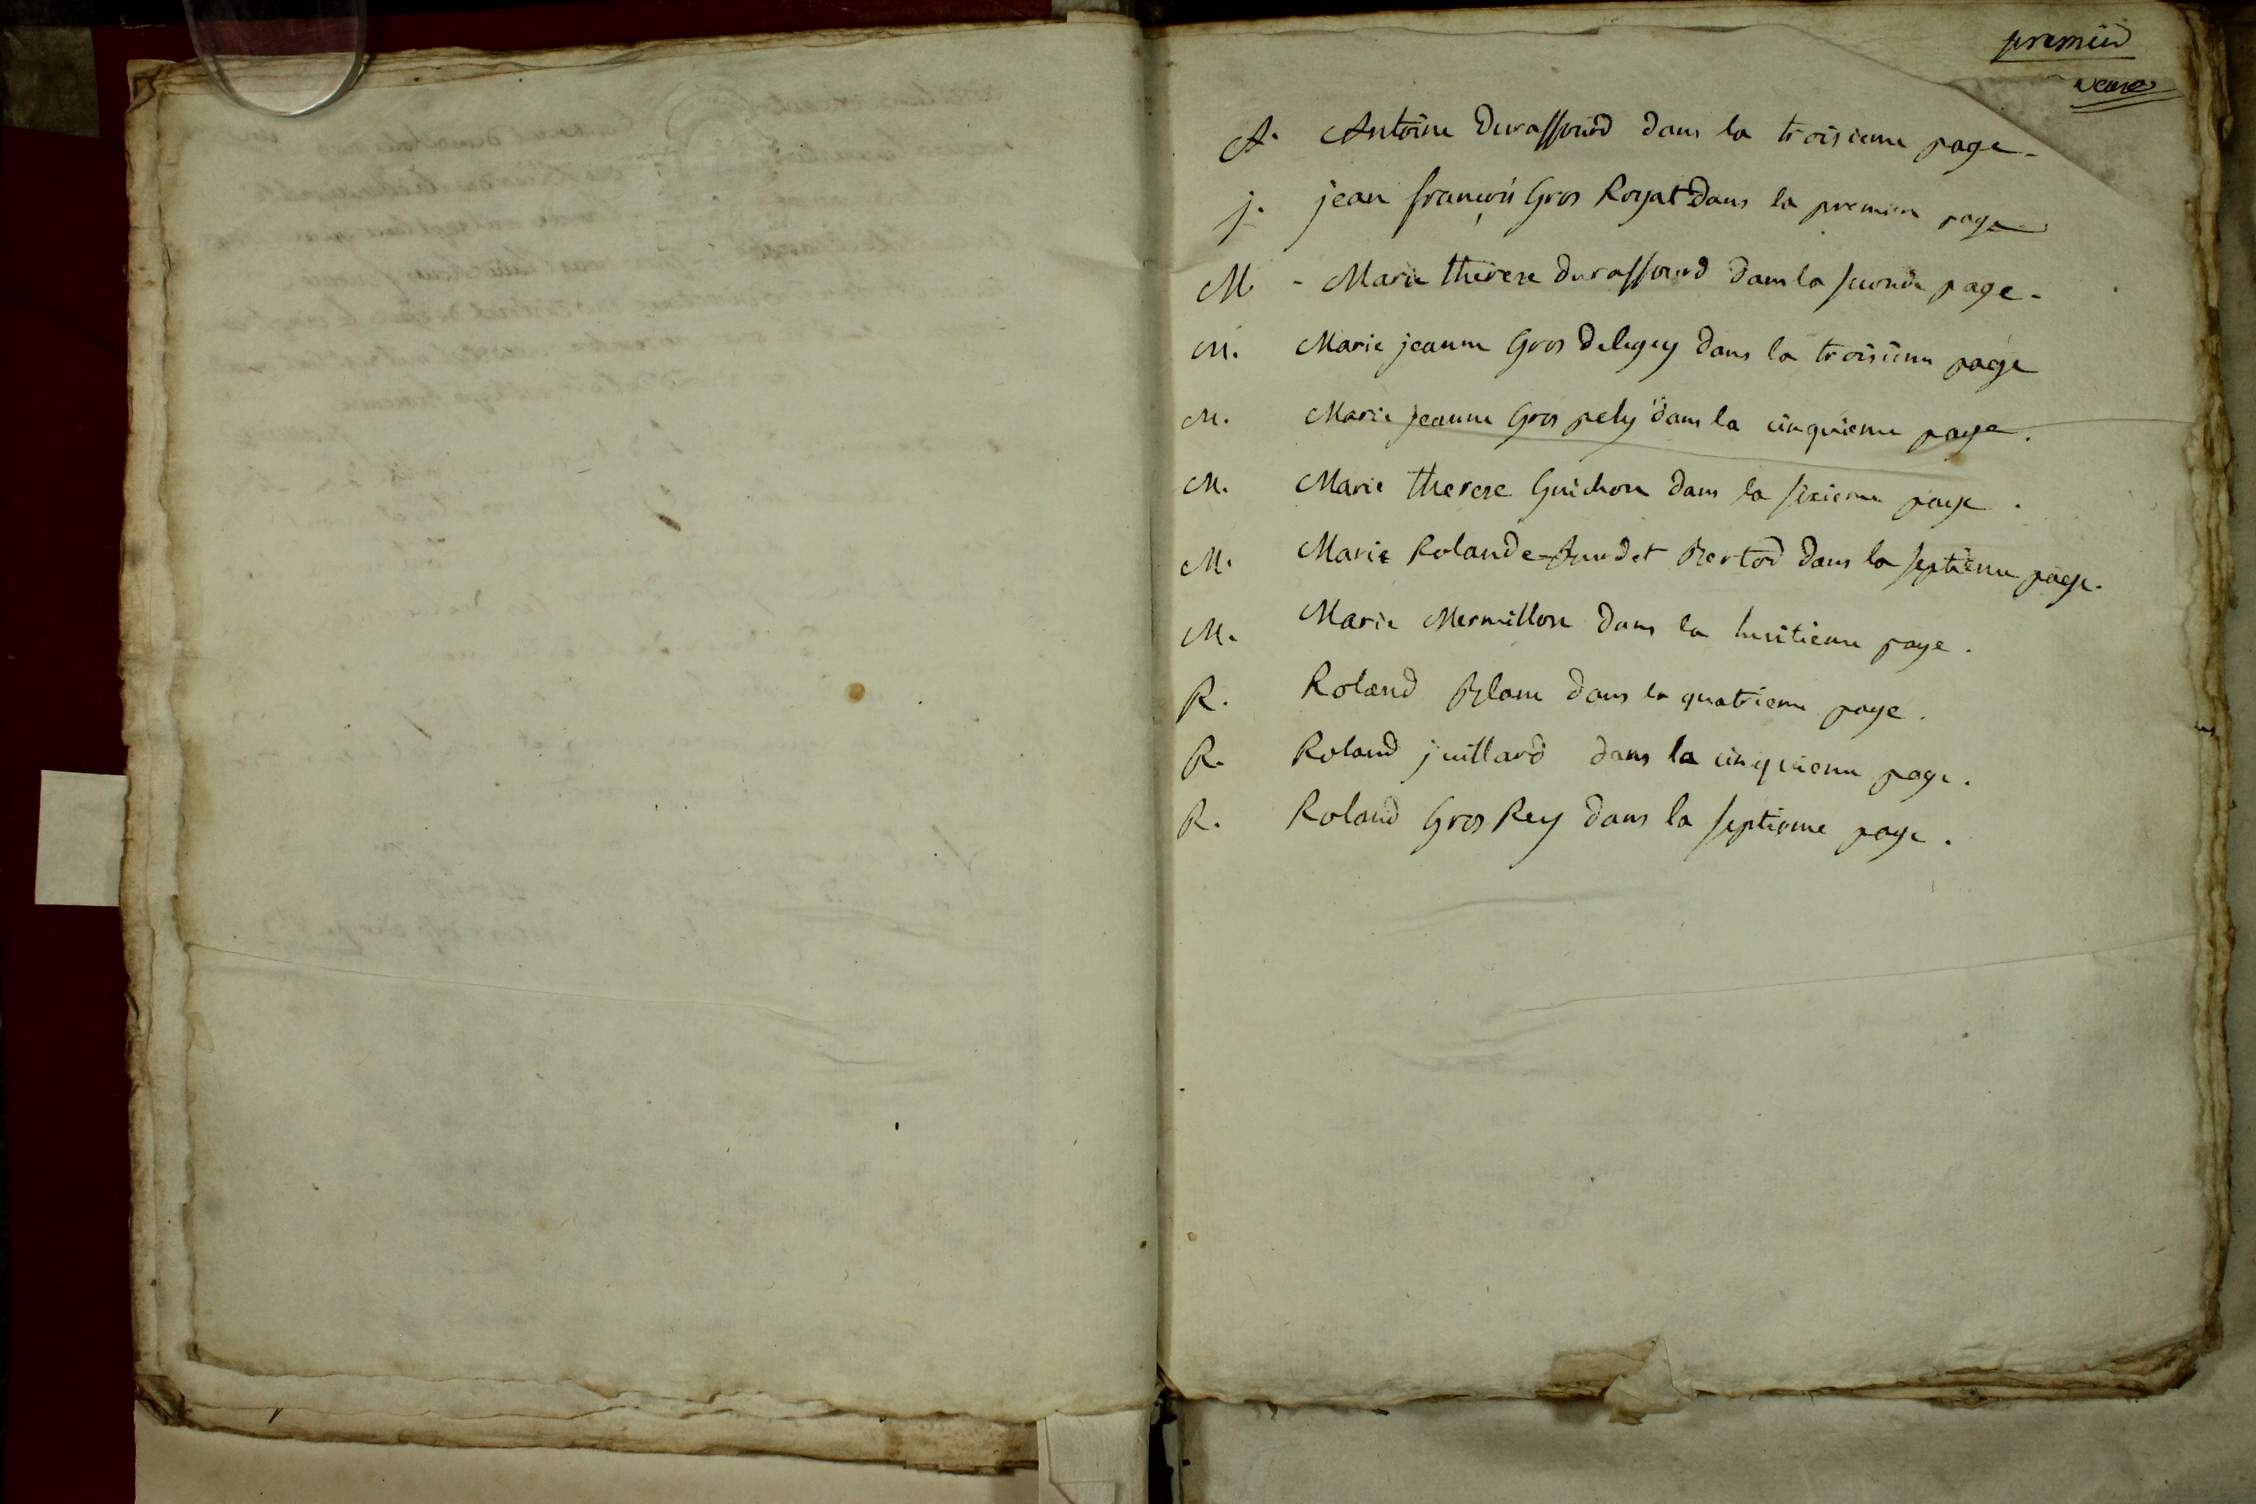 premier
deux
A. Antoine Duraffourd dans la troisieme page.
j. jean françois Gros Royat dans la premiere page
M. Marie therese duraffourd dans la seconde page.
M. Marie jeanne Gros delegey dans la troisieme page
M. Marie jeanne Gros pely dans la cinquieme page.
M. Marie therese Guichon dans la sixieme page.
M. Marie Rolande Bertod dans la septieme page.
M. Marie Mermillon dans la huitieme page.
R. Roland Blanc dans la quatrieme page.
R. Roland juillard dans la cinquieme page.
R. Roland Gros Rey dans la septieme page.